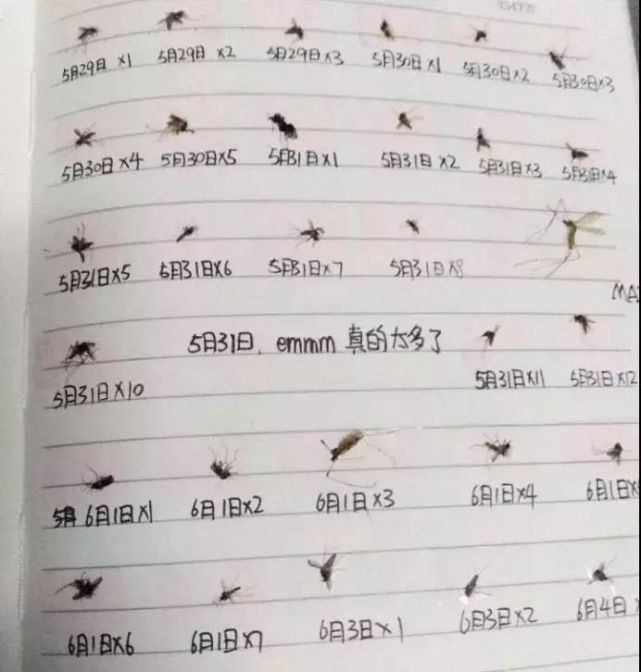 5月29日 x1 5月29日 x2 5月29日 x3 5月30日 x1 5月30日 x2 5月30日 x3
5月30日 x4 5月30日 x5 5月31日 x1 5月31日 x2 5月31日 x3 5月31日 x4
5月31日 x5 5月31日 x6 5月31日 x7 5月31日 x8
MA
5月31日 x10 5月31日, emmm 真的太多了 5月31日 x11 5月31日 x12
6月1日 x1 6月1日 x2 6月1日 x3 6月1日 x4 6月1日 x
6月1日 x6 6月1日 x7 6月3日 x1 6月3日 x2 6月4日